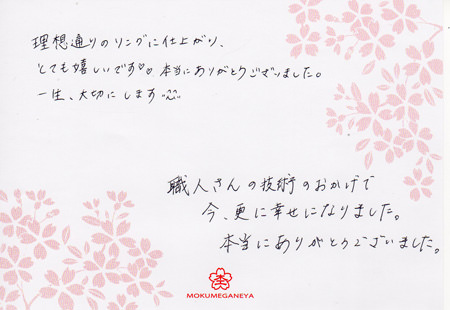 理想通りのリングに仕上がり、
とても嬉しいです♡♡本当にありがとうございました。
一生、大切にします^^
職人さんの技術のおかげで
今、更に幸せになりました。
本当にありがとうございました。
MOKUMEGANEYA